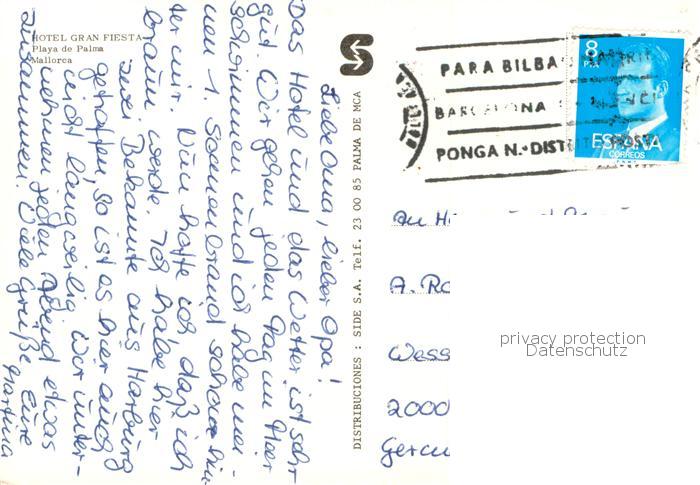 HOTEL GRAN FIESTA
Playa de Palma
Mallorca
Liebe Oma, lieber Opa!
Das Hotel und das Wetter ist sehr
gut. Wir gehen jeden Tag im Meer
schwimmen und ich habe mei-
nen 1. Sonnenbrand schon hin-
ter mir. Nun hoffe ich daß ich
braun werde. Ich habe hier
zwei Bekannte aus Harburg
getroffen, so ist es hier auch
nicht langweilig. Wir unter-
nehmen jeden Abend etwas
zusammen. Viele Grüße Eure
Martina
DISTRIBUCIONES : SIDE S.A. Telf. 23 00 85 PALMA DE MCA
S
PARA BILBA
BARCELONA
PONGA N.º DIST
8
PTA
ESPAÑA
CORREOS
An
A. Ro
Wess
2000
Germ
privacy protection
Datenschutz